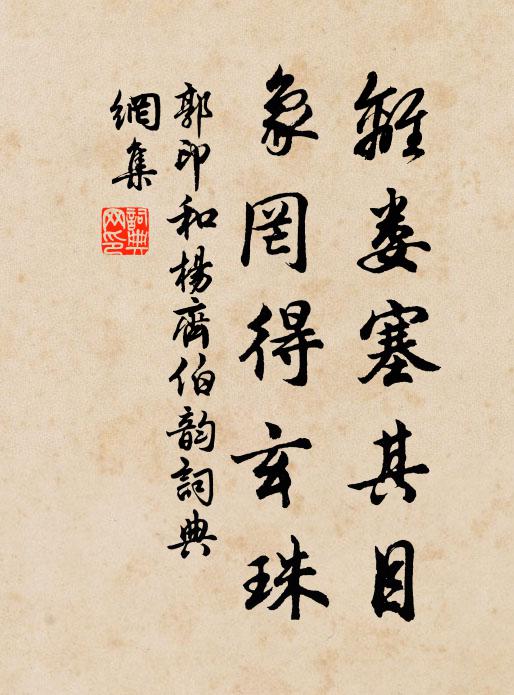 離婁塞其目
象罔得玄珠
郭印和楊齊伯韵詞典
網集
詞典
网印